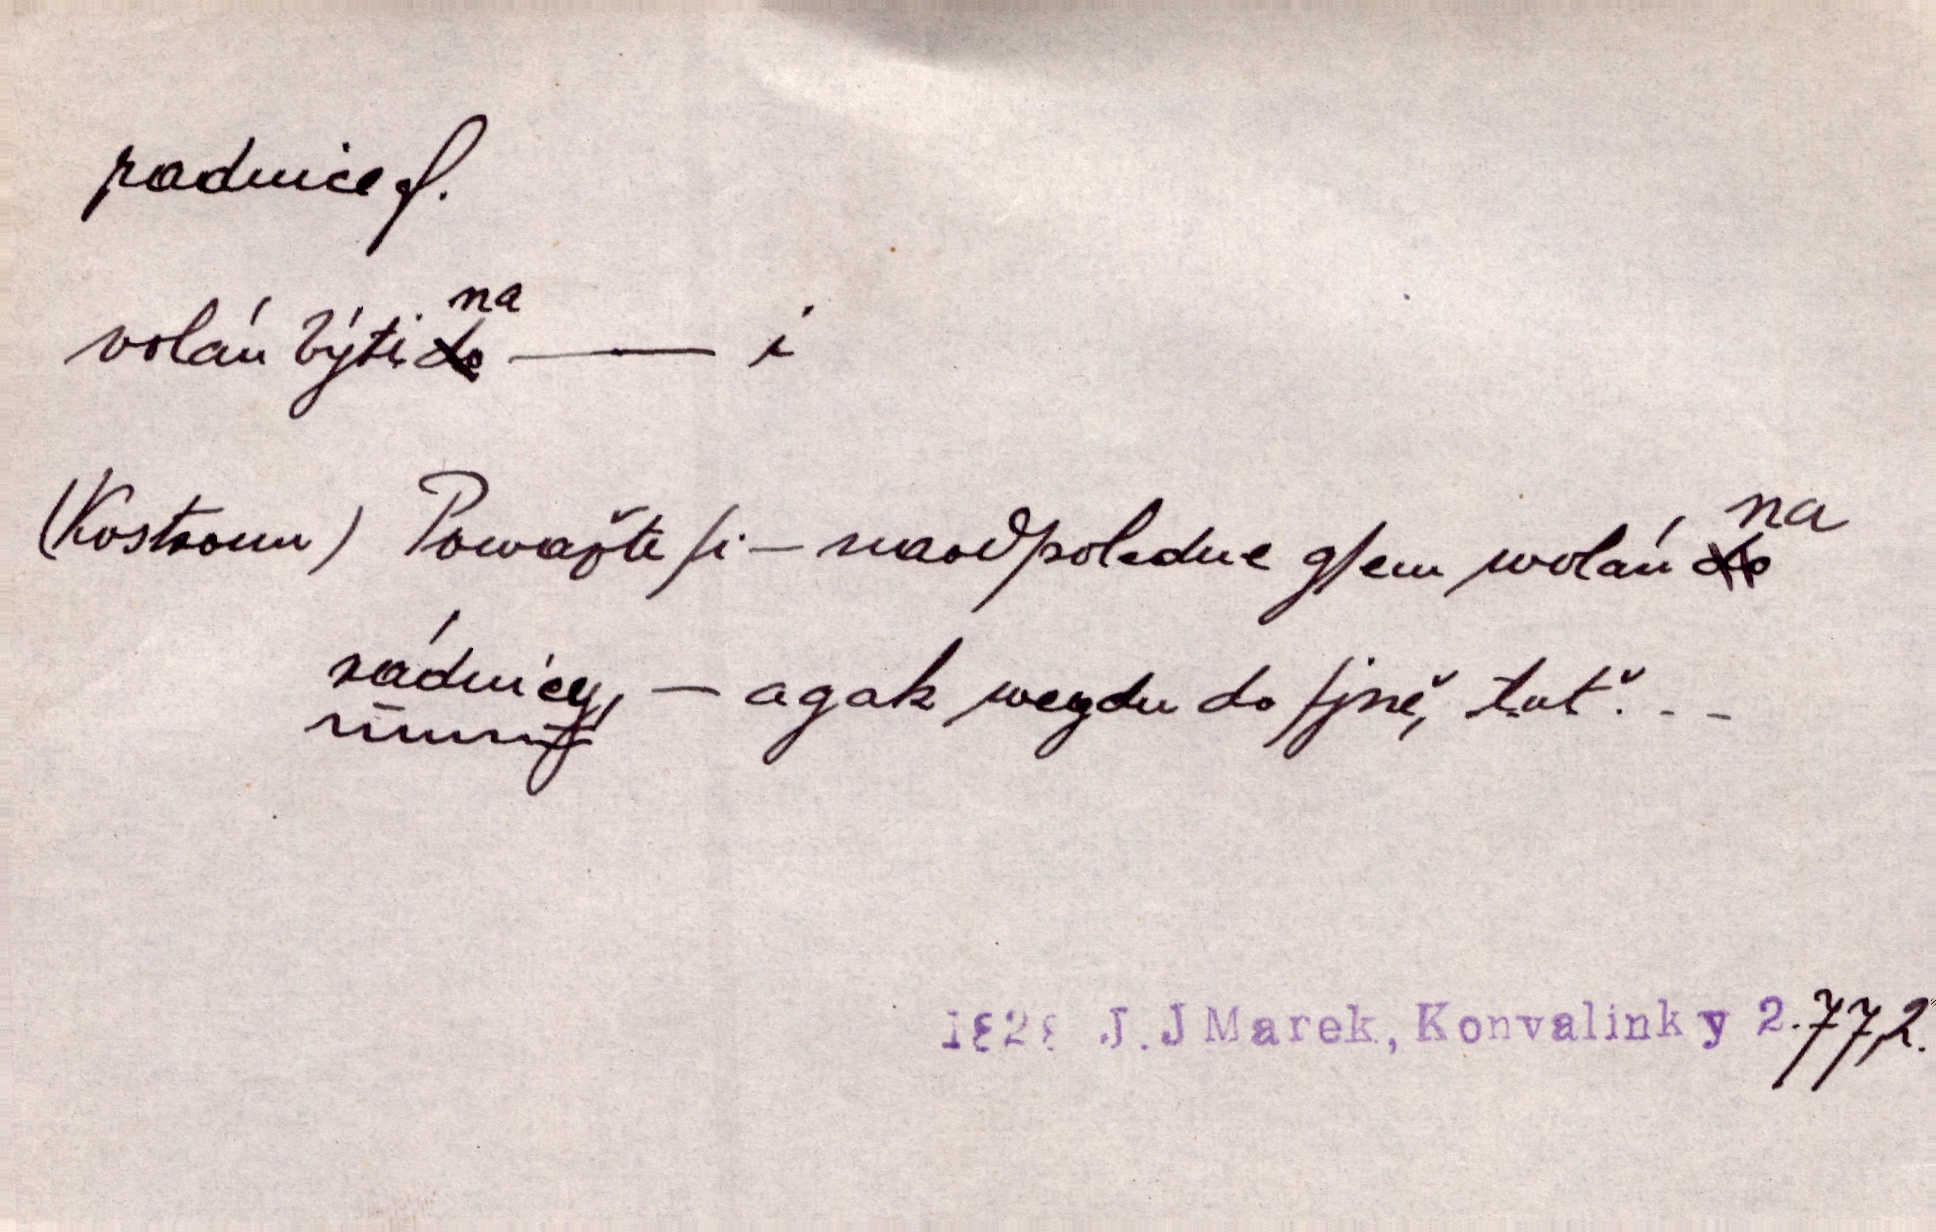 radnice f.
volán býti na ——— i
(Kostroun) Powažte ſi — naodpoledne gſem wolán na
rádnicy, — a gak wegdu do ſjně, tuť . - -
1828 J.J Marek, Konvalinky 2.77,2.